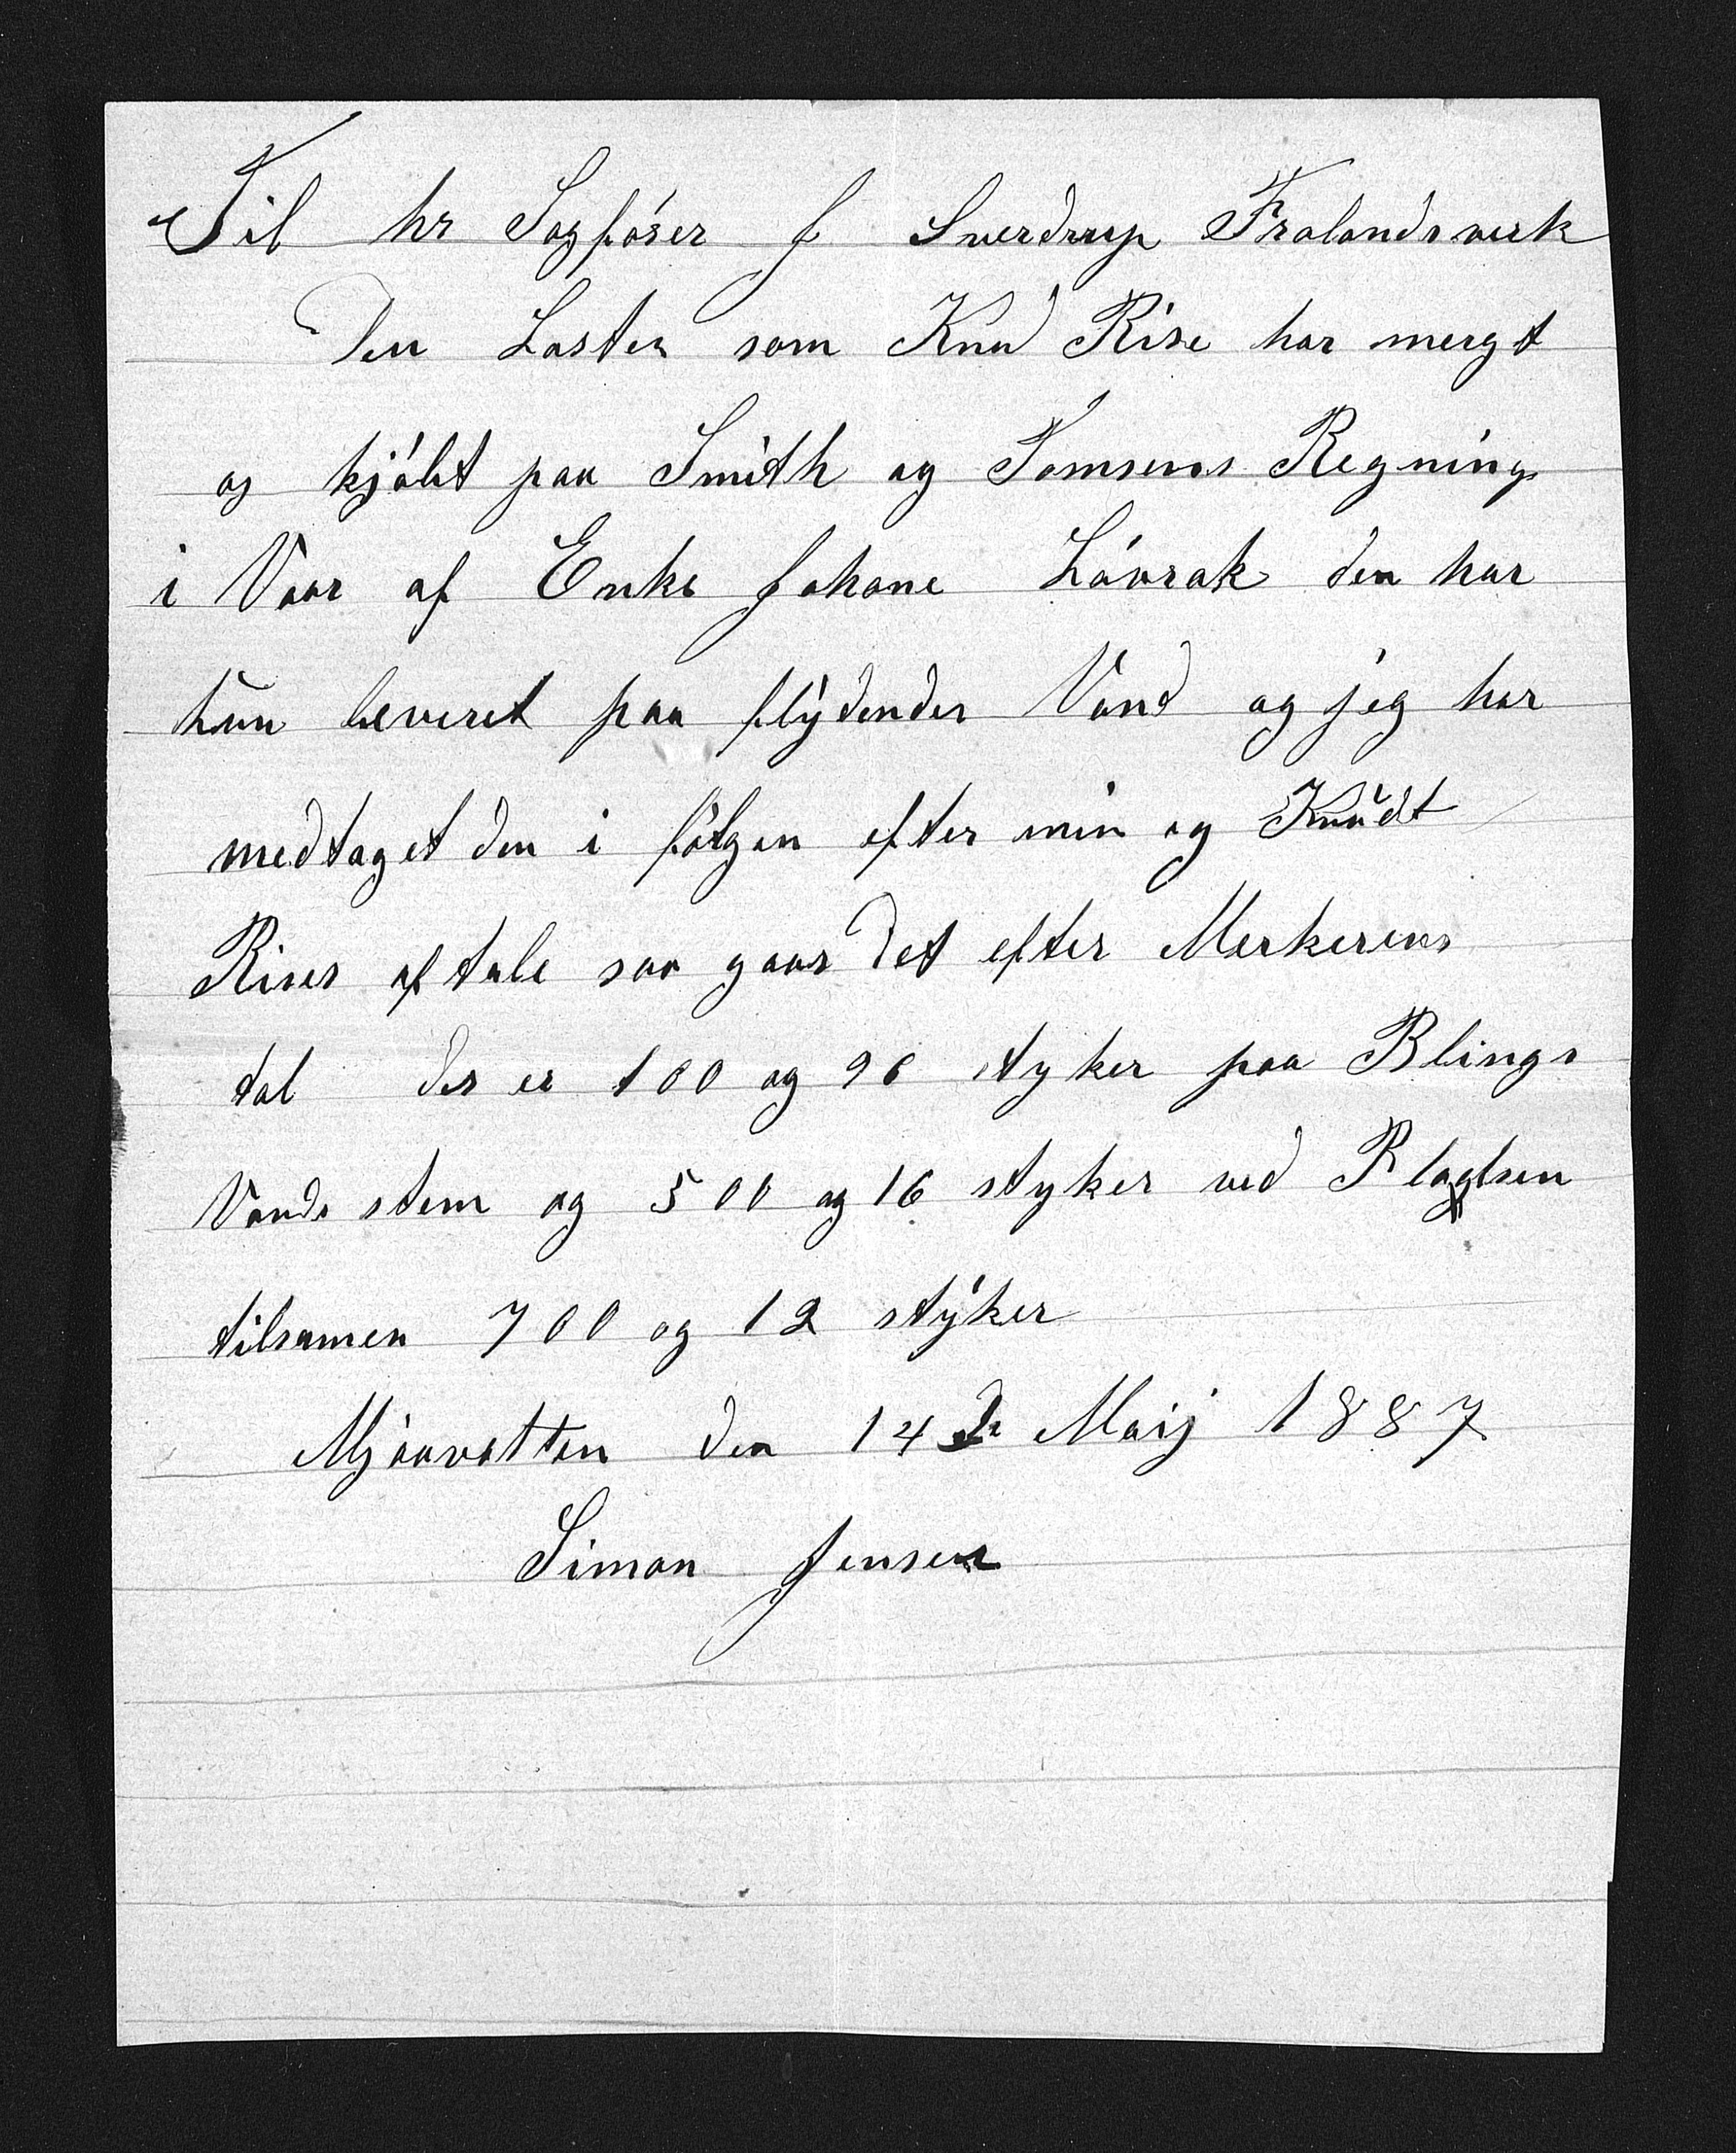 Til hr Sagfører J Sverdrup Frolandsverk
Den Laster som Knu Rise har mergt
og kjøbt paa Smith og Tomsens Regning
i Vaar af Enke Johane Løvrak den har
hun leveret paa flydender Vand og jeg har
medtaget den i følgen efter min og Knudt
Rises aftale saa gaar det efter Merkerens
tal der er 100 og 96 styker paa Blings
Vands stem og 500 og 16 styker ved
tilsamen 700 og 12 styker
Mjaavatten den 14 de Maij 1887
Simon Jensen